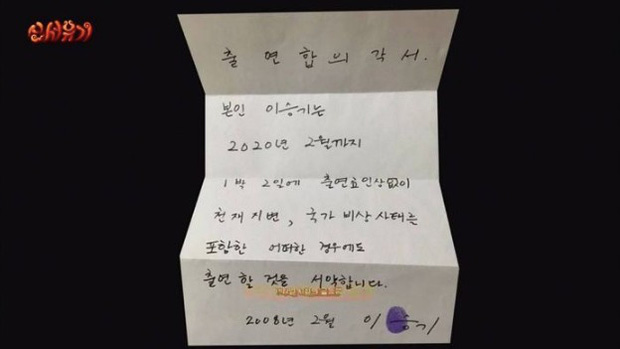 신서유기
출연합의각서.
본인 이승기는
2020년 2월까지
1박 2일에 출연료인상없이
천재지변, 국가 비상사태를
포함한 어떠한 경우에도
출연할 것을 서약합니다.
2008년 2월 이승기